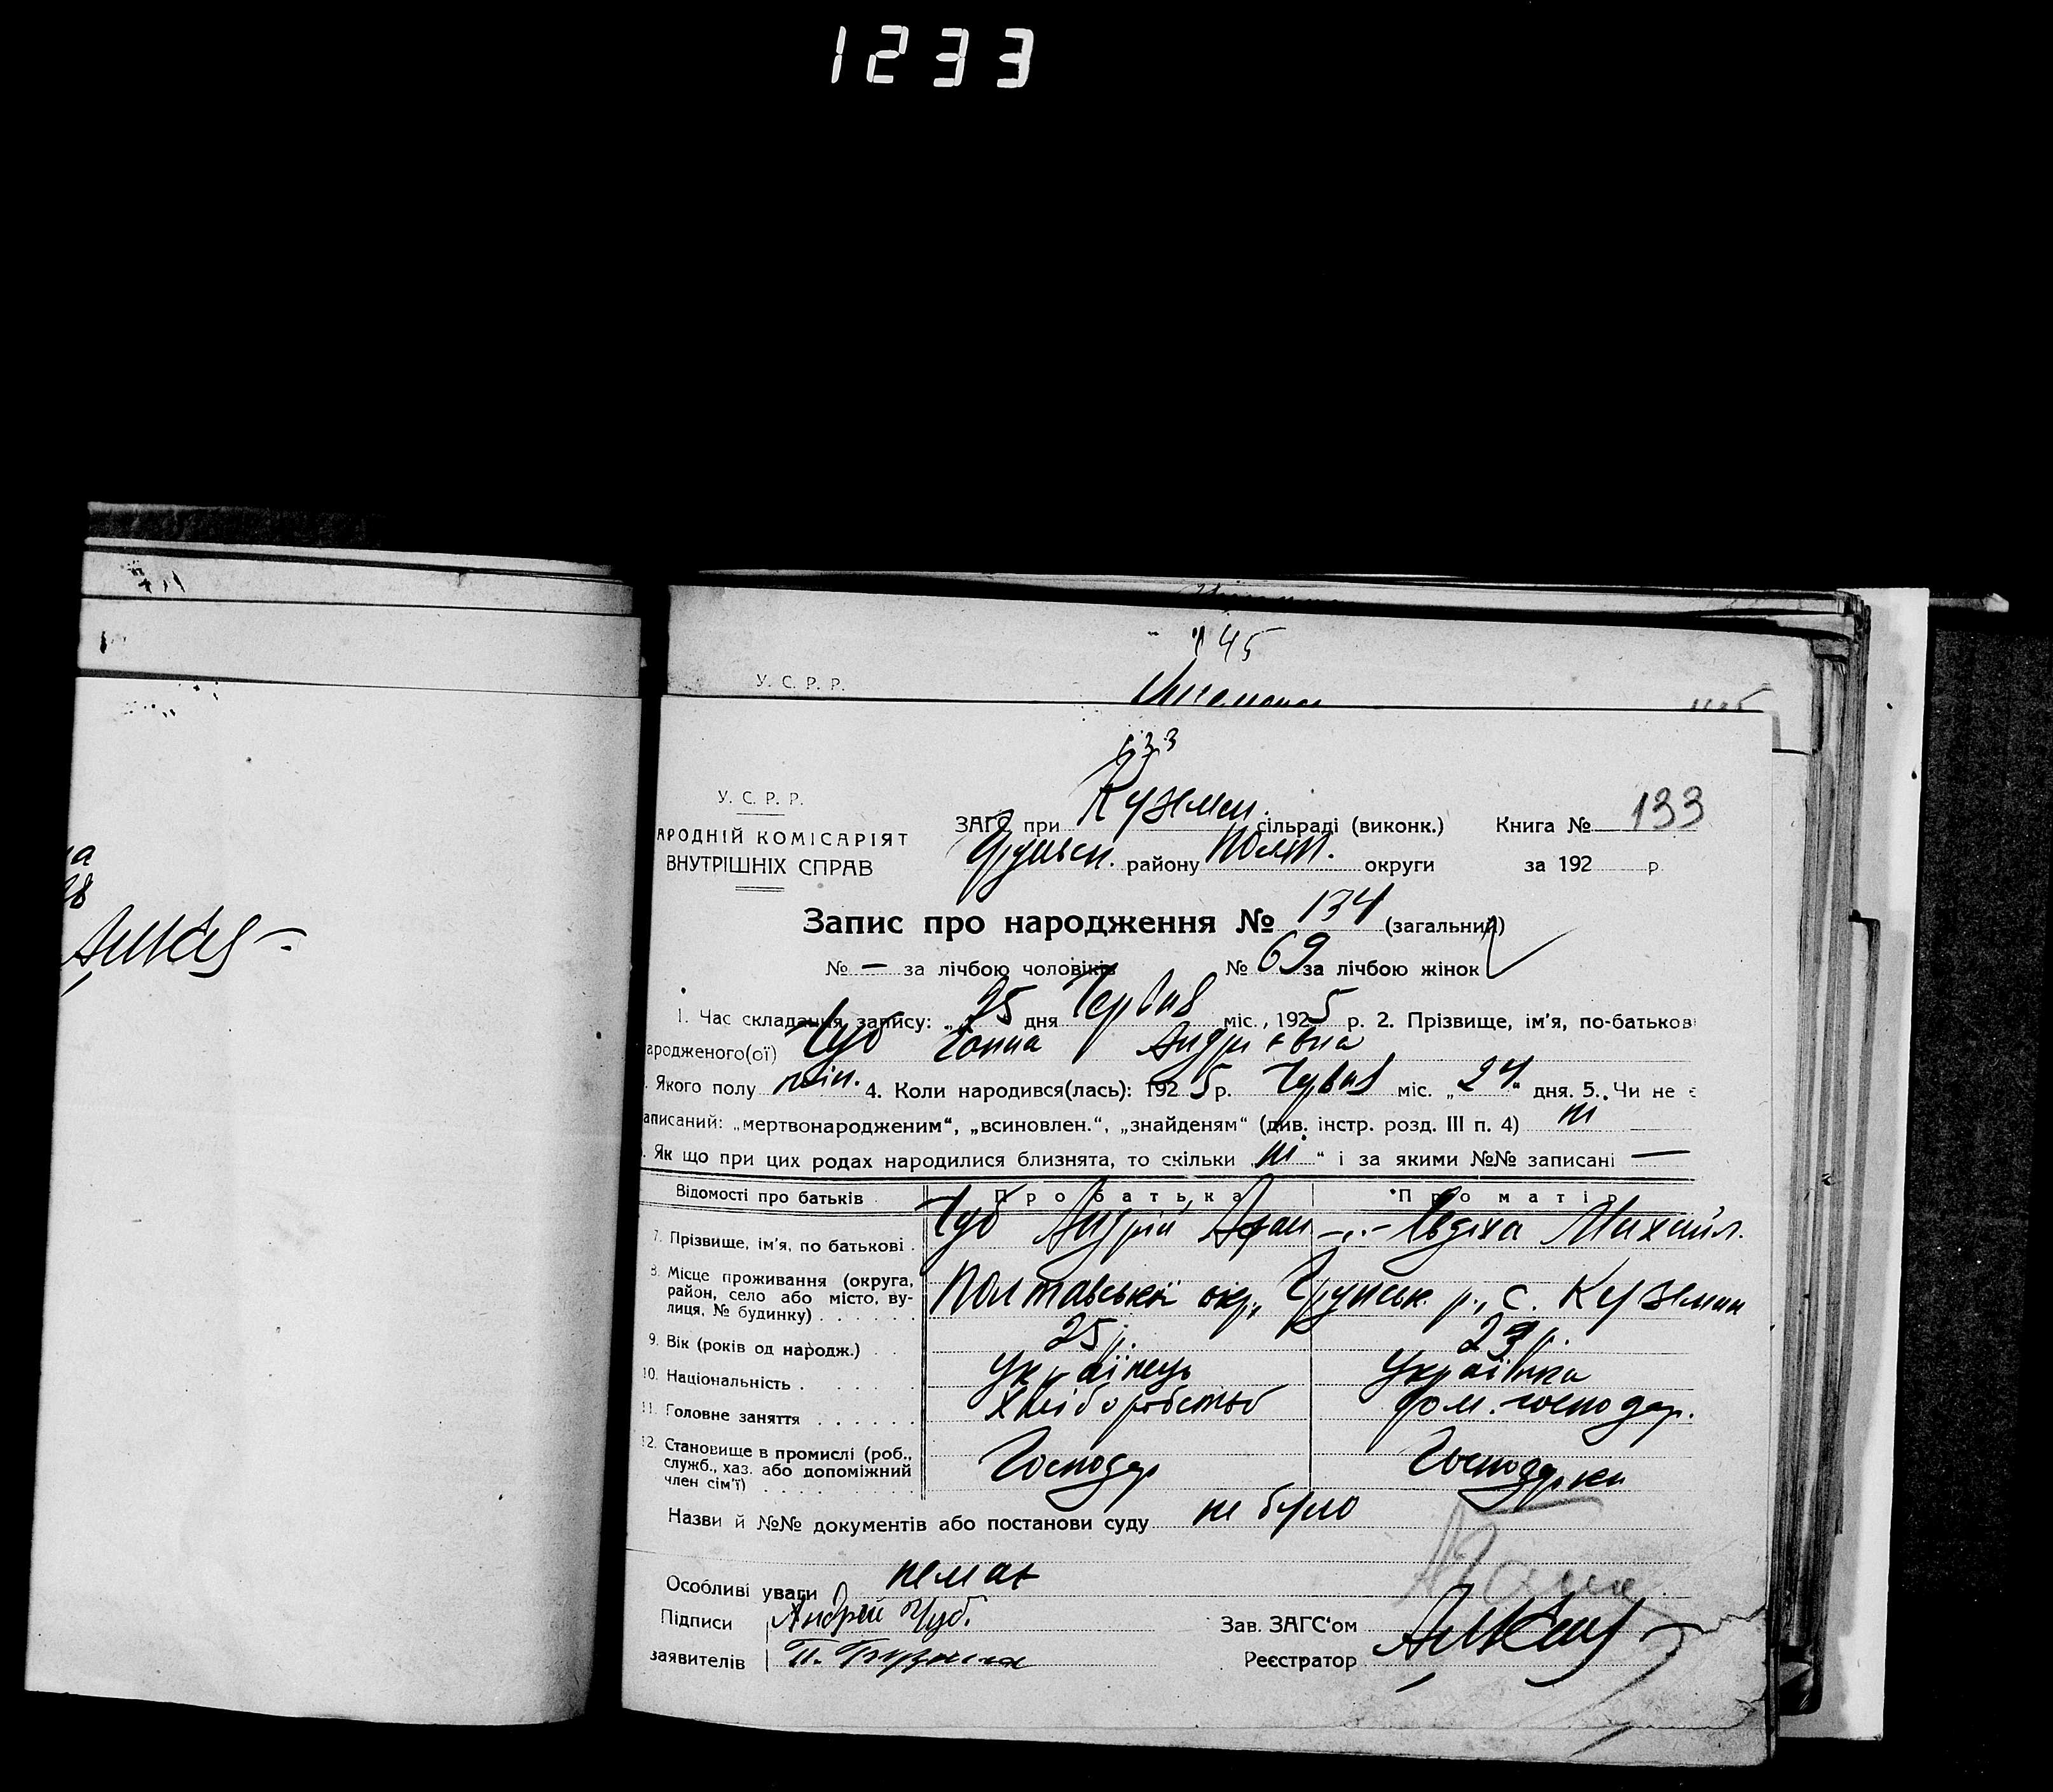 1233
145
У. С. Р. Р.
133
У. С. Р. Р.
АРОДНІЙ КОМІСАРІЯТ
ВНУТРІШНІХ СПРАВ
ЗАГС при Кузмен. сільраді (виконк.) Книга № 133
Грунськ. району Полт. округи за 192 р.
Запис про народження № 134 (загальний)
№ — за лічбою чоловіків № 69 за лічбою жінок
1. Час складання запису: „25 дня Червня міс., 1925 р. 2. Прізвище, ім'я, по-батькові
ародженого(ої) Чуб Ганна Андрієвна
. Якого полу жін. 4. Коли народився(лась): 1925 р. Червня міс. „24“ дня. 5. Чи не є
аписаний: „мертвонародженим“, „всиновлен.“, „знайденям“ (див. інстр. розд. III п. 4) ні
. Як що при цих родах народилися близнята, то скільки ні “ і за якими №№ записані —
Відомості про батьків Про батька Про матір
7. Прізвище, ім'я, по батькові . Чуб Андрій Афан —„— Евдіха Михайл.
8. Місце проживання (округа,
район, село або місто, ву-
лиця, № будинку) . . . . . . Полтавської окр., Грунськ. р., с. Кузмин
9. Вік (років од народж.) . . 25 р. 29 р.
10. Національність . . . . . . Українець Українка
11. Головне заняття . . . . . . Хліборобство дом. господар.
12. Становище в промислі (роб.,
служб., хаз. або допоміжний
член сім'ї) . . . . . . . . . Господар Господарка
Назви й №№ документів або постанови суду не було
Особливі уваги немає
Підписи Андрей Чуб. Зав. ЗАГС'ом
заявителів П. Реєстратор